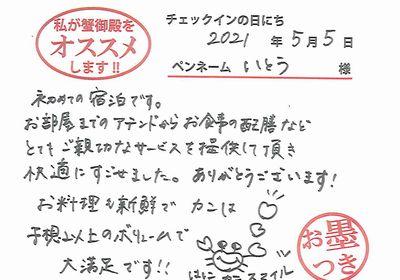 私が蟹御殿を
オススメ
します!!
チェックインの日にち
2021 年 5月 5日
ペンネーム いとう 様
初めての宿泊です。
お部屋までのアテンドからお食事の配膳など
とてもご親切なサービスを提供して頂き
快適にすごせました。ありがとうございます!
お料理も新鮮で カニは
予想以上のボリュームで
大満足です!!
お墨つき